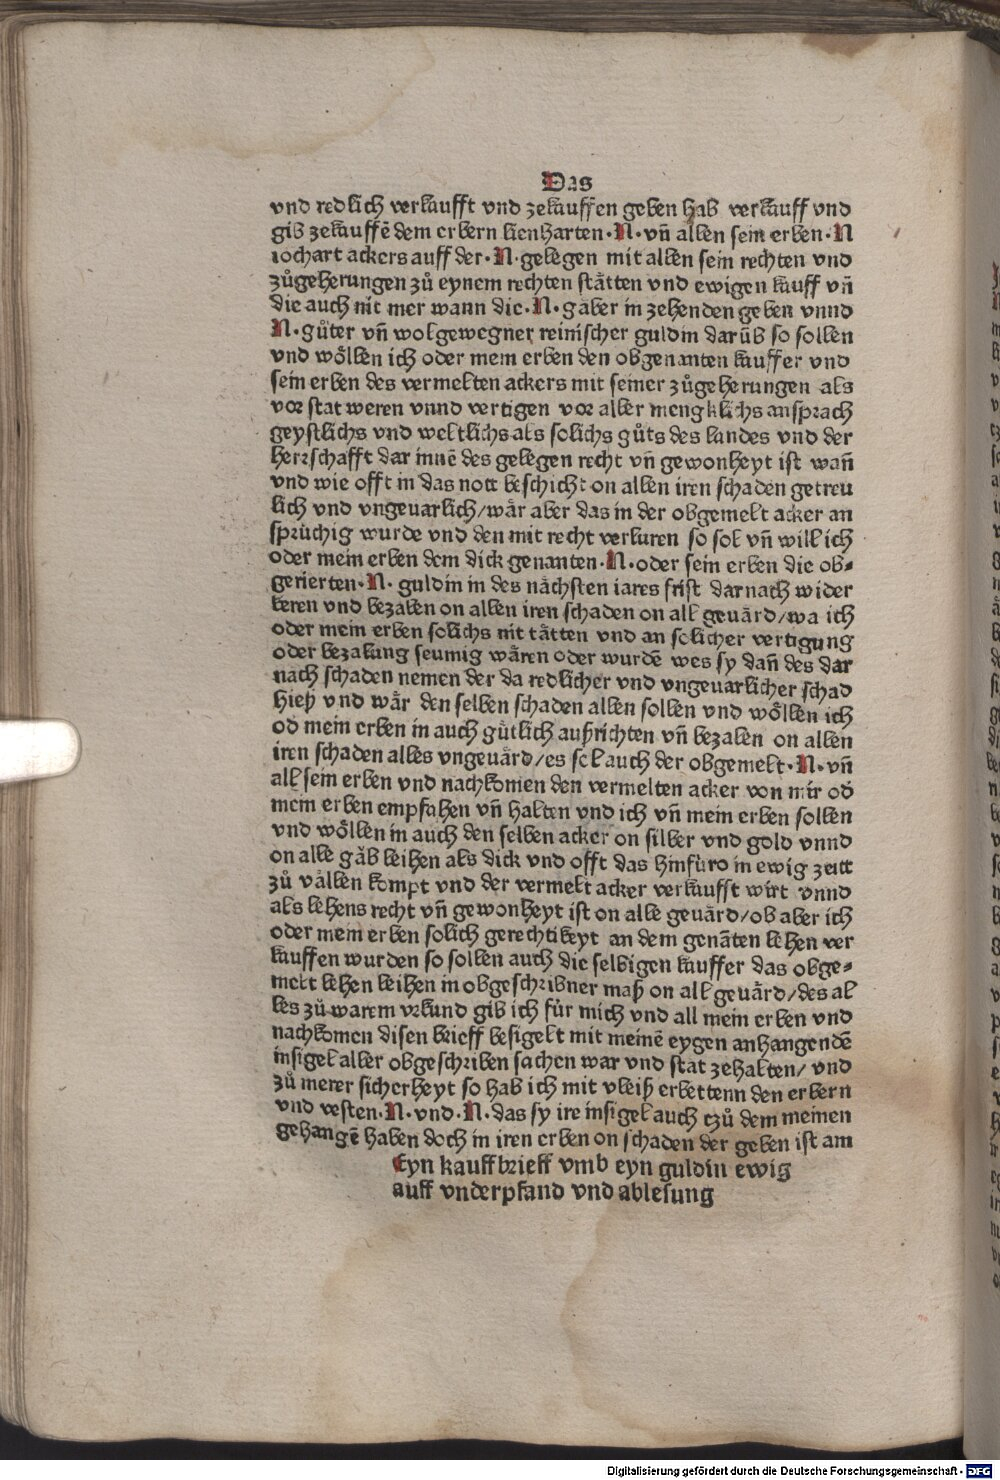 Das
vnd redlich verkaufft vnd zekauffen geben hab verkauff vnd
gib zekauffē dem erbern lienharten·N· vn̄ allen sein erben·N
iochart ackers auff der·N·gelegen mit allen sein rechten vnd
zůgeherungen zů eynem rechten stätten vnd ewigen kauff vn̄
die auch nit mer wann die·N·gäber in zehenden geben vnnd
N·gůter vn̄ wolgewegner reinischer guldin darüb so sollen
vnd wöllen ich oder mein erben den obgenanten kauffer vnd
sein erben des vermelten ackers mit seiner zůgeherungen als
vor stat weren vnnd vertigen vor aller mengklichs ansprach
geystlichs vnd weltlichs als solichs gůts des landes vnd der
herrschafft dar innē des gelegen recht vn̄ gewonheyt ist wan̄
vnd wie offt in das nott beschicht on allen iren schaden getreu
lich vnd vngeuarlich/wär aber das in der obgemelt acker an
sprüchig wurde vnd den mit recht verluren so sol vn̄ will ich
oder mein erben dem dick genanten·N·oder sein erben die ob⸗
gerierten·N· guldin in des nächsten iares frist darnach wider
keren vnd bezalen on allen iren schaden on all geuärd/wa ich
oder mein erben solichs nit tätten vnd an solicher vertigung
oder bezalung seumig wären oder wurdē wes sy dan̄ des dar
nach schaden nemen der da redlicher vnd vngeuarlicher schad
hieß vnd wär den selben schaden allen sollen vnd wöllen ich
od̄ mein erben in auch gütlich außrichten vn̄ bezalen on allen
iren schaden alles vngeuärd/es sol auch der obgemelt·N·vn̄
all sein erben vnd nachkomen den vermelten acker von mir od̄
mein erben empfahen vn̄ halten vnd ich vn̄ mein erben sollen
vnd wöllen in auch den selben acker on silber vnd gold vnnd
on alle gäb leihen als dick vnd offt das hinfüro in ewig zeitt
zů vällen kompt vnd der vermelt acker verkaufft wirt vnnd
als lehens recht vn̄ gewonheyt ist on alle geuärd/ob aber ich
oder mein erben solich gerechtikeyt an dem genāten lehen ver
kauffen wurden so sollen auch die selbigen kauffer das obge⸗
melt lehen leihen in obgeschribner maß on all geuärd/des al
les zů warem vrkund gib ich für mich vnd all mein erben vnd
nachkomen disen brieff besigelt mit meinē eygen anhangendē
insigel aller obgeschriben sachen war vnd stät zehalten/ vnd
zů merer sicherheyt so hab ich mit vleiß erbettenn den erbern
vnd vesten·N·vnd·N·das sy ire insigel auch czů dem meinen
gehangē haben doch in iren erben on schaden der geben ist am
Eyn kauff brieff vmb eyn guldin ewig
auff vnderpfand vnd ablesung
Digitalisierung gefördert durch die Deutsche Forschungsgemeinschaft - DFG